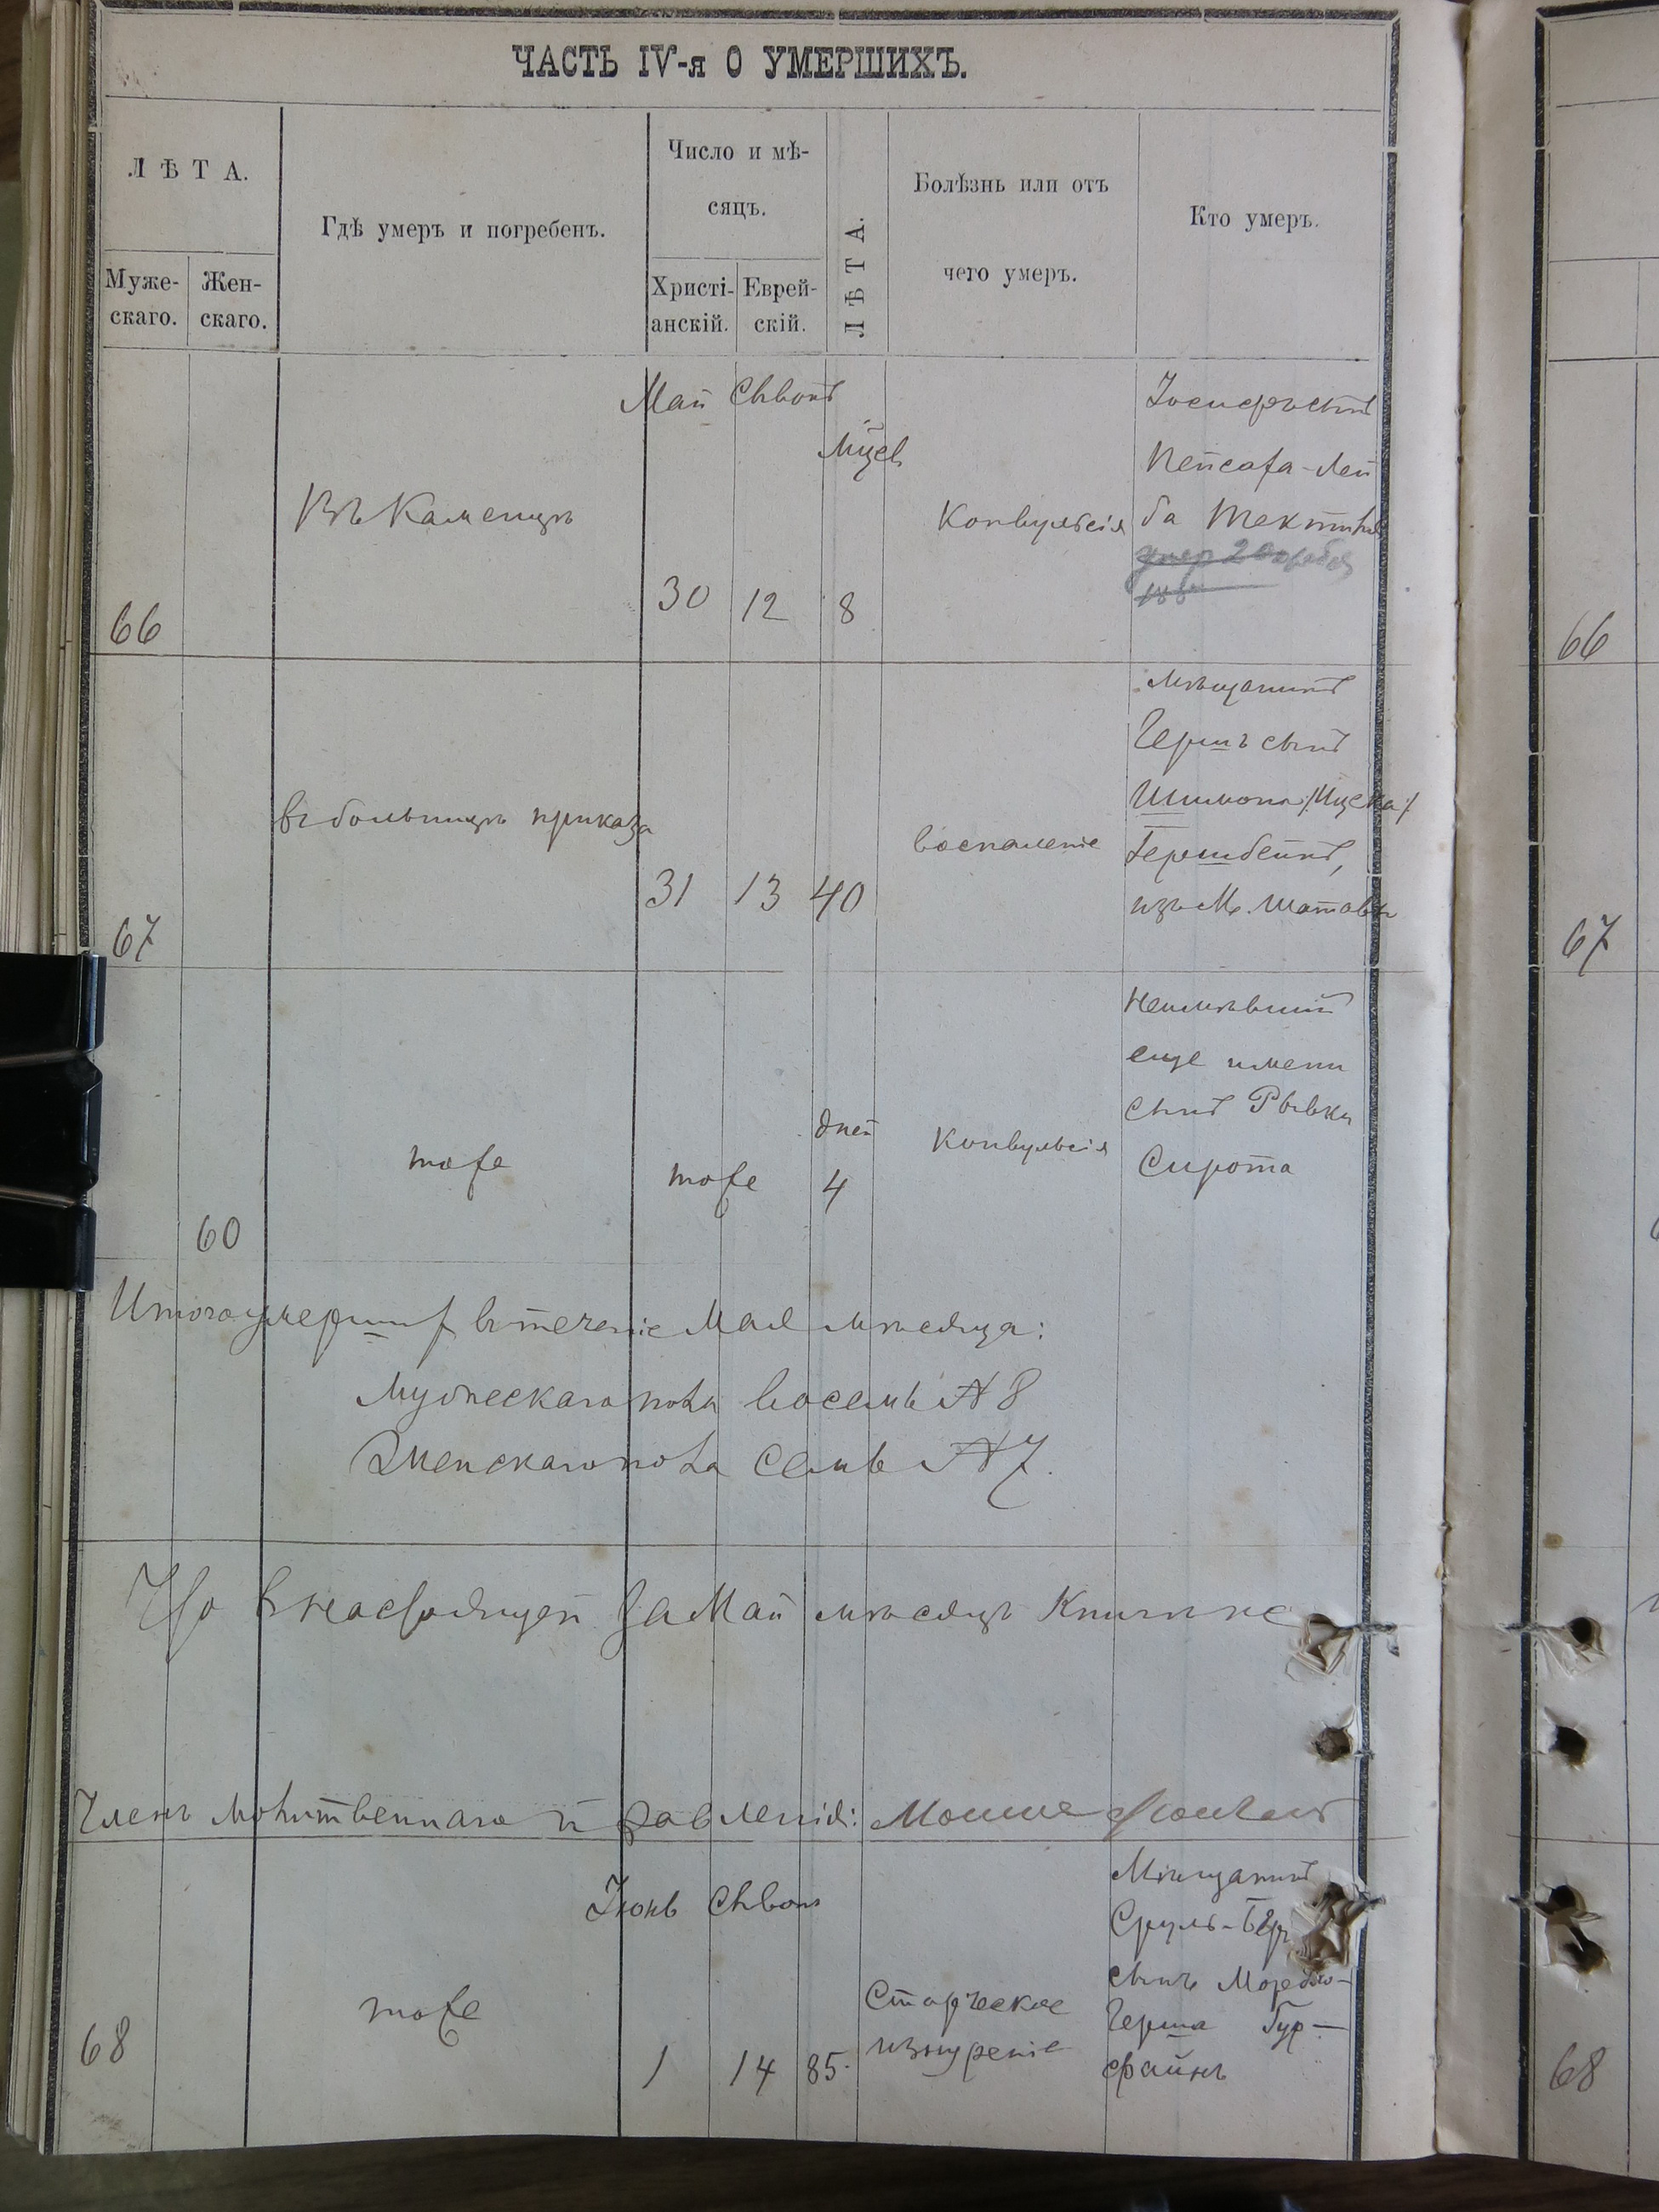 ЧАСТЬ IV-я О УМЕРШИХЪ.
ЛѢТА.
Муже-
скаго.
Жен-
скаго.
Гдѣ умеръ и погребенъ.
Число и мѣ-
сяцъ.
Христі-
анскій.
Еврей-
скій.
ЛѢТА.
Болѣзнь или отъ
чего умеръ.
Кто умеръ.
Май Сывонъ
Мцев
66
Въ Каменцѣ
30 12 8
Конвульсія
Іосифъ сынъ
Пейсаха-Лей
ба
умер 2
188
66
67
въ больницѣ приказа
31 13 40
воспаление
мѣщанинъ
Гершъ сынъ
Шимона /Ицека/
Герш
изъ М. Шатавы
67
60
тоже
тоже
дней
4
Конвульсія
Неимѣвший
еще имени
сынъ Рывки
Сирота
Итого умершихъ втечение Мая мѣсяца:
Мужескаго пола восемь № 8
Женскаго пола семь № 7.
Что в настоящей за Май мѣсяцъ Книжке
Членъ молитвеннаго правленія: Мошко
Іюнь Сывонъ
68
тоже
1 14 85
Старческое
изнуреніе
Мѣщанинъ
Сруль-Бер
сынъ Мордко-
Герша Гур-
файнъ
68